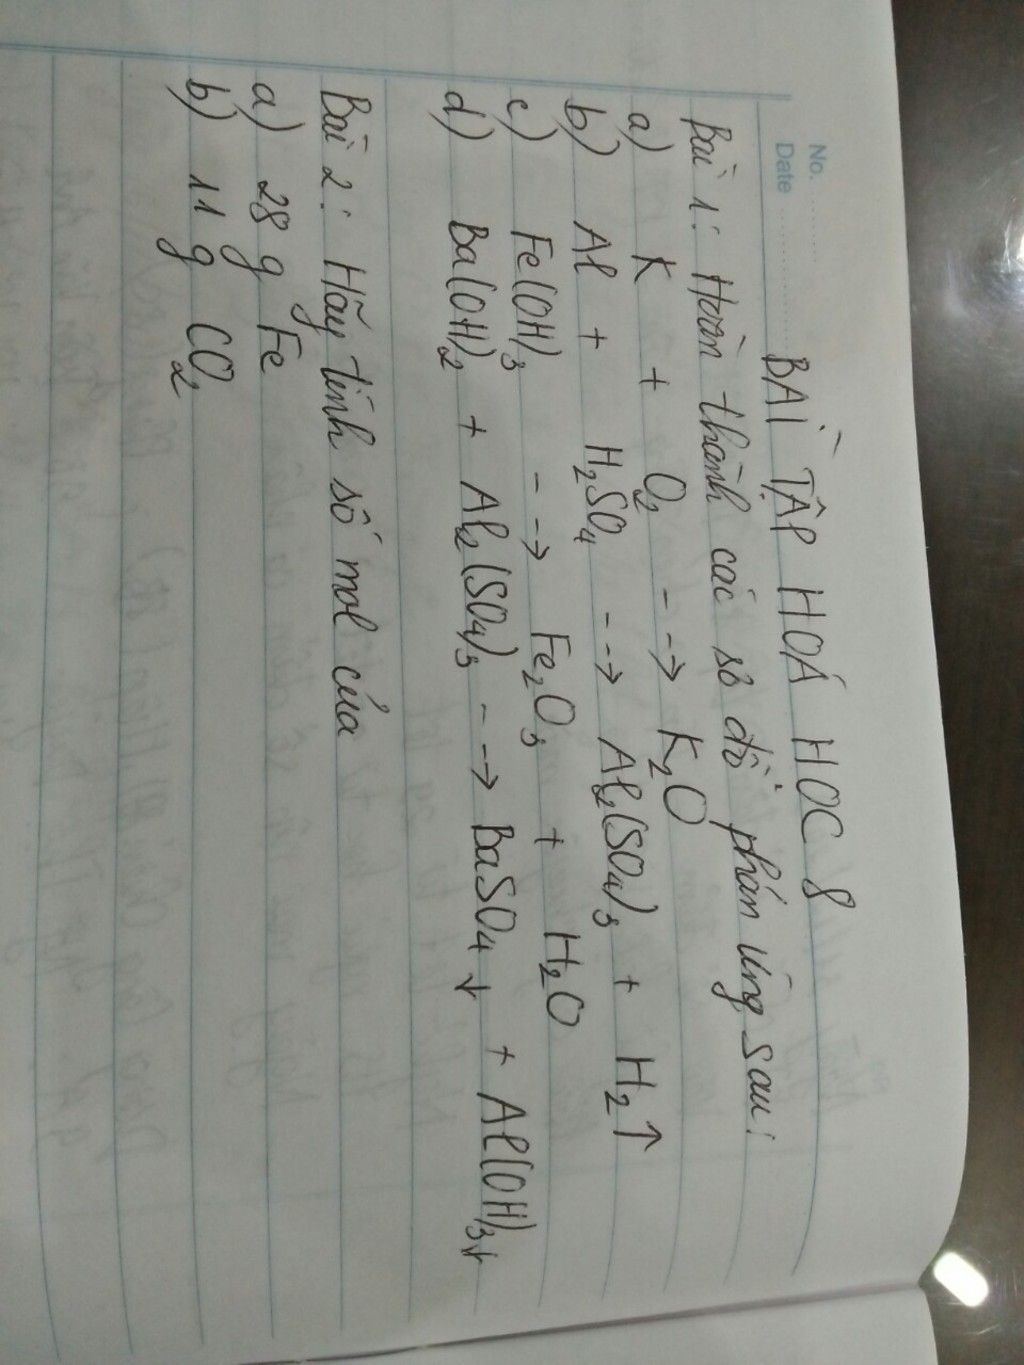 No.
Date
BÀI TẬP HOÁ HỌC 8
Bài 1: Hoàn thành các sơ đồ phản ứng sau:
a) K + O₂ --→ K₂O
b) Al + H₂SO₄ --→ Al₂(SO₄)₃ + H₂↑
c) Fe(OH)₃ --→ Fe₂O₃ + H₂O
d) Ba(OH)₂ + Al₂(SO₄)₃ --→ BaSO₄↓ + Al(OH)₃↓
Bài 2: Hãy tính số mol của
a) 28 g Fe
b) 11 g CO₂